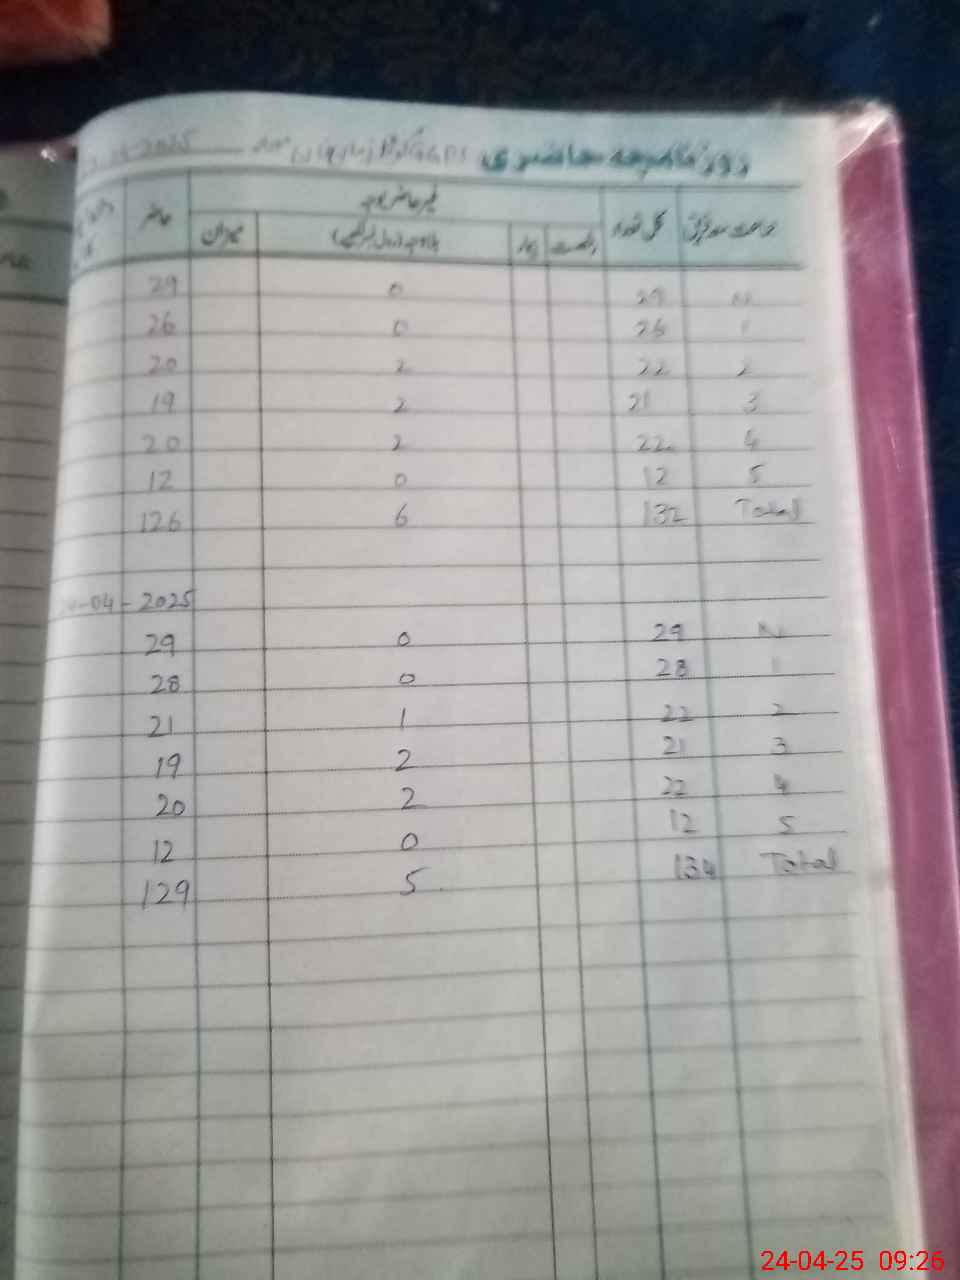 روزنامچہ حاضری
جماعت معہ فریق کل تعداد رخصت بیمار غیر حاضر بلاوجہ میزان حاضر
N 29 0 29
1 26 0 26
2 22 2 20
3 21 2 19
4 22 2 20
5 12 0 12
Total 132 6 126
-04-2025
N 29 0 29
1 28 0 28
2 22 1 21
3 21 2 19
4 22 2 20
5 12 0 12
Total 134 5 129
24-04-25 09:26